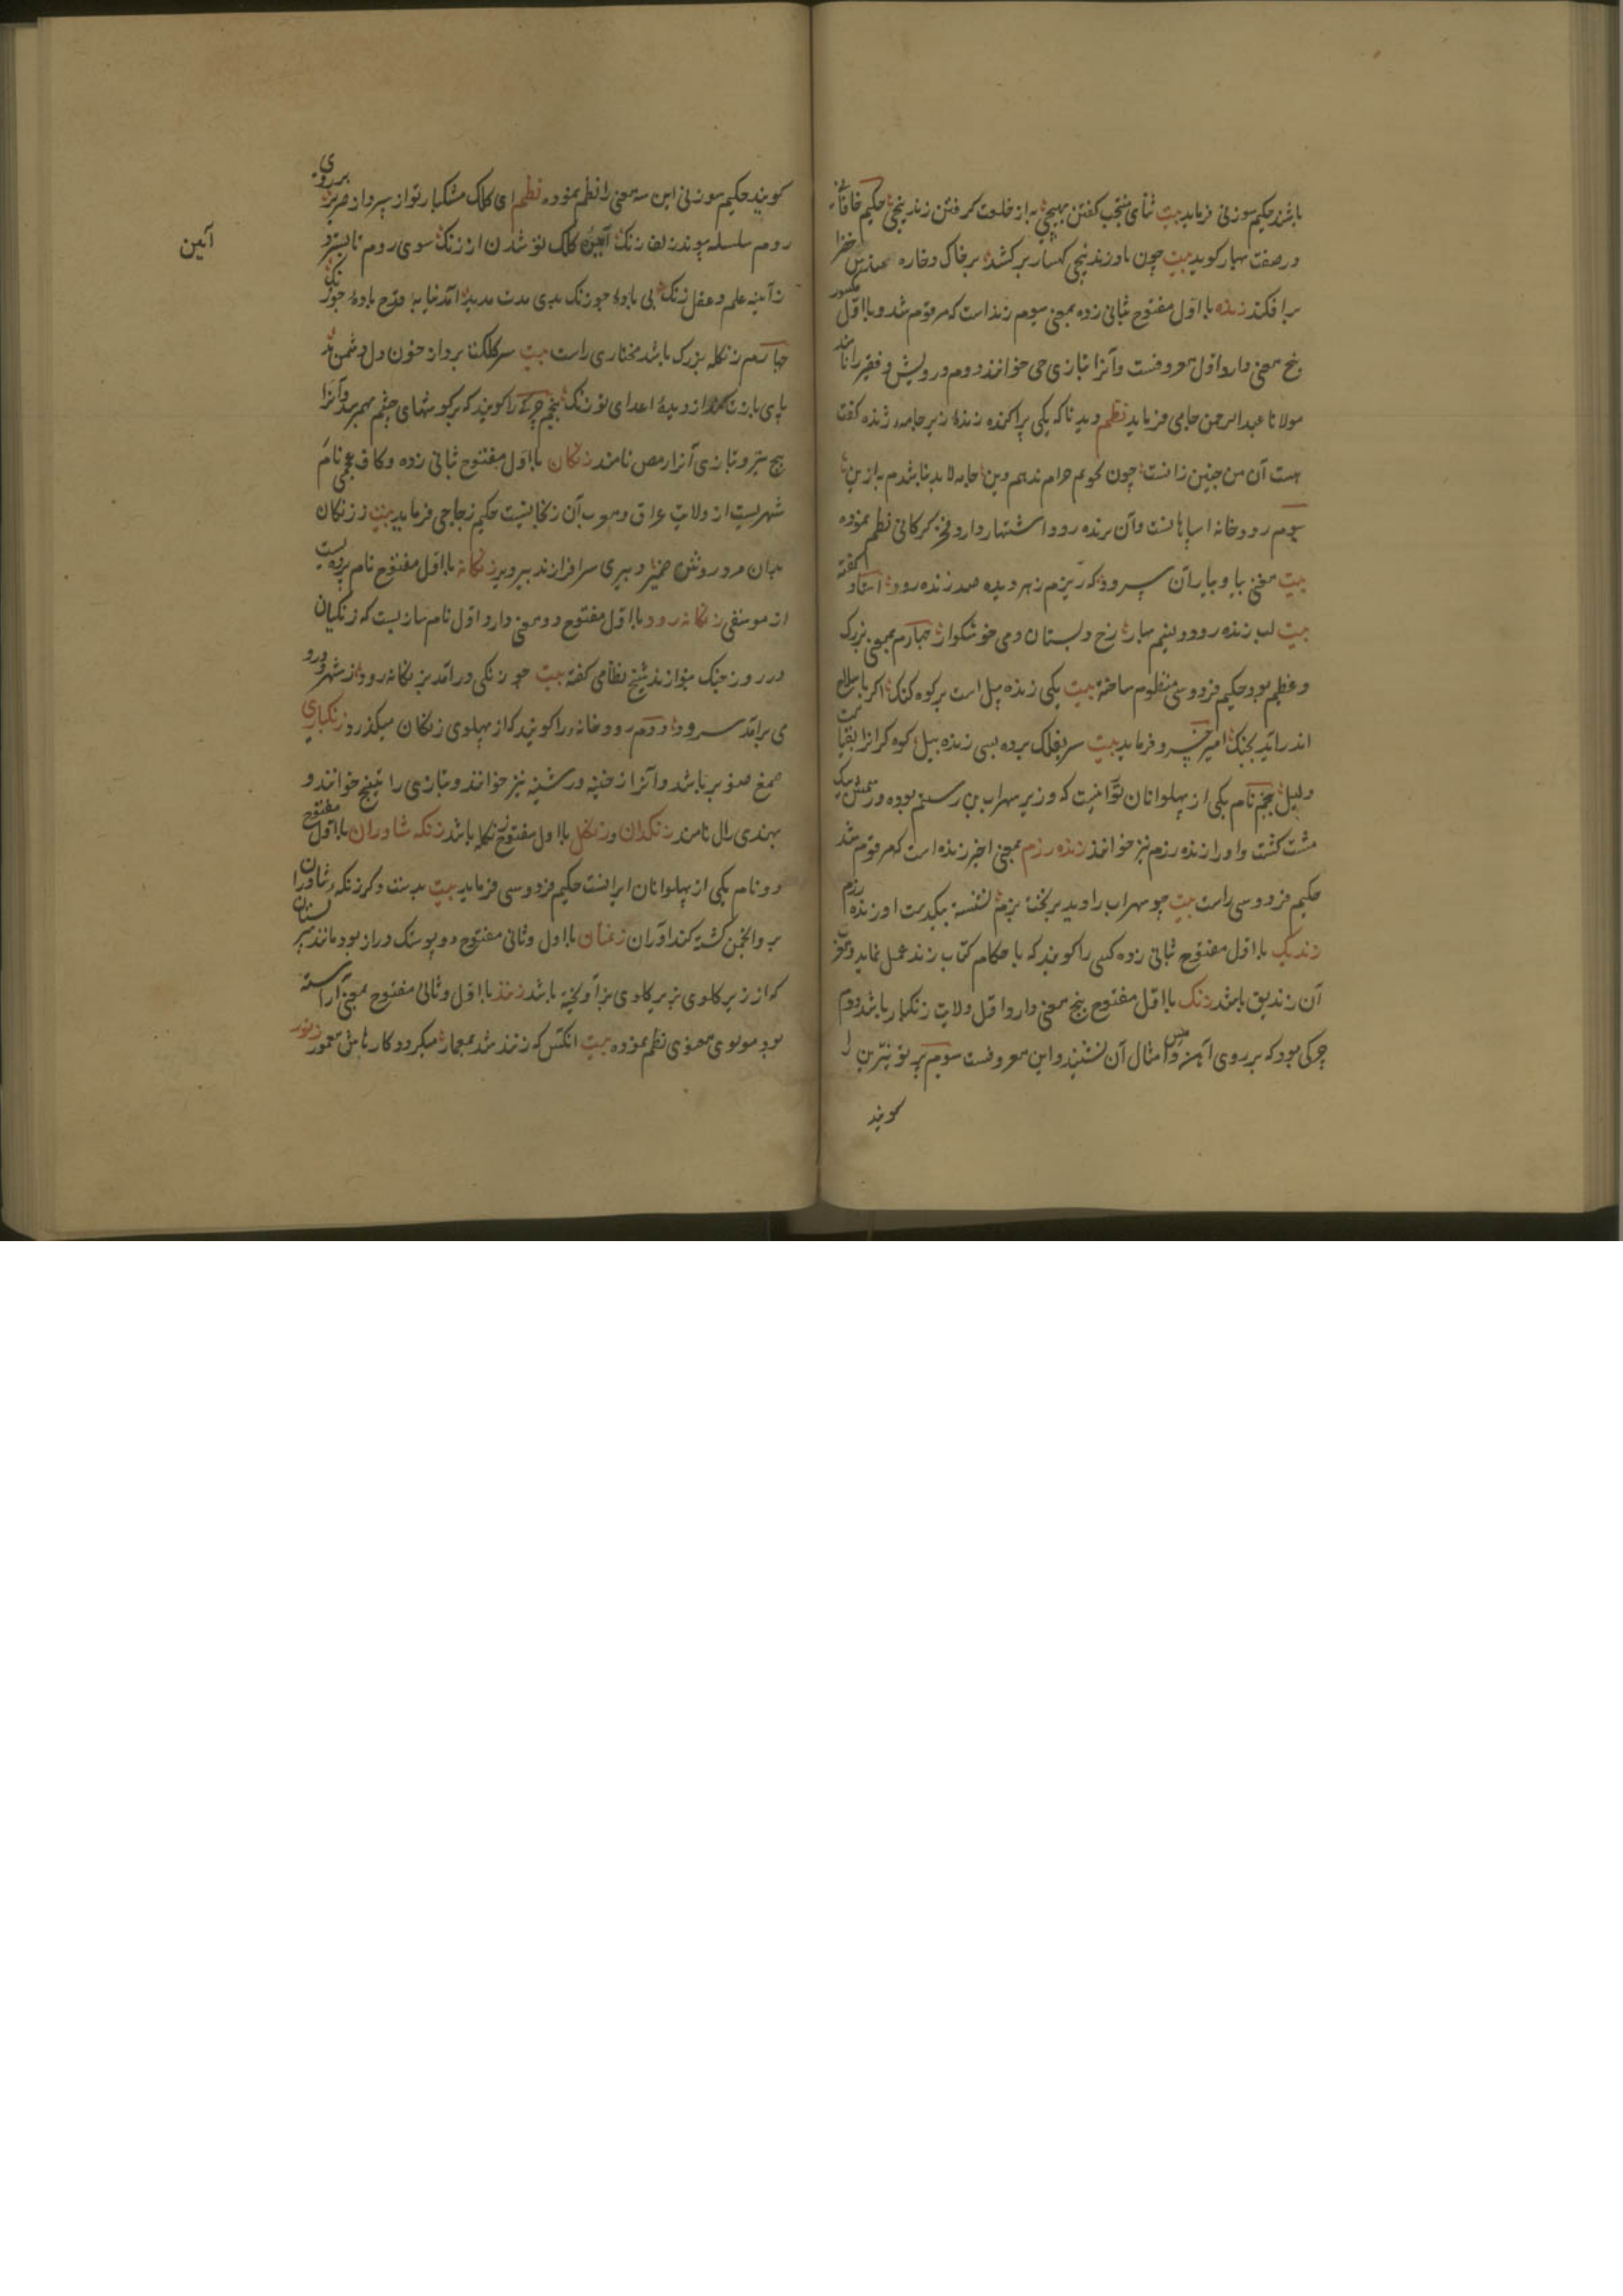 باشد حکیم سوزنی فرماید بیت ثنای منتجب گفتن بهیچی به از خلعت گرفتن زندپیچی حکیم خاقانی
در صفت بهار گوید بیت چون باد زندپیچی کهسار برکشد بر خاک و خاره خضرا
برافکند زنده با اول مفتوح ثانی زده بمعنی سیوم زند است که مرقوم شد و با اول مکسور
پنج معنی دارد اول معروفست و آنرا بتازی حی خوانند دوم درویش و فقیر را نامند
مولانا عبدالرحمن جامی فرماید نظم دید ناکه یکی پراکنده زنده زیر جامه ژنده گفت
هست آن من چنین زانست چون نخواهم حرام ندهم دین جامه لابد نباشدم به ازین
سیوم رودخانه اسپاهانست و آن بزنده رود اشتهار دارد فخر گرکانی نظم نموده
بیت سرود که ریزم زهر دیده صد زنده رود استاد گفته
بیت لب زنده رود و نسیم بهار رخ دلستان و می خوشگوار چهارم بمعنی بزرک
و عظیم بود حکیم فردوسی منظوم ساخته بیت یکی زنده پیل است بر کوه کنک اگر با سلاح
اندر آید بجنک امیر خسرو فرماید بیت سر بفلک برده بسی زنده پیل کوه گرانرا بقیامت
دلیل پنجم نام یکی از پهلوانان تورانیست که وزیر سهراب بن رستم بوده و رستمش بیک
مشت کشت و او را زنده رزم نیز خوانند زنده رزم بمعنی اخیر زنده است که مرقوم شد
حکیم فردوسی راست بیت چو سهراب را دید بر تخت بزم نشسته بیکدست او زنده رزم
زندیک با اول مفتوح ثانی زده کسی را گویند که باحکام کتاب زند عمل نماید و معرب
آن زندیق باشد زنک با اول مفتوح پنج معنی دارد اول ولایت زنکبار باشد دوم
چرکی بود که بر روی آهن و مس و امثال آن نشیند و این معروفست سوم پرتو نیرین را
گویند
گویند حکیم سوزنی این سه معنی را نظم نموده نظم ای کلک مشکبار تو از بهر بر روی
روم سلسله پیوند زلف زنک آیین کلک تو شدن از زنک سوی روم تا بسترد
ز آینه علم و عقل زنک بی باده چو زنک بدی مدت مدید آمد نما به قدح باده چو زنک
چهارم زنکله بزرک باشد مختاری راست بیت
پای باز از دیده اعدای تو زنک پنجم چرک را گویند که بر گوشهای چشم بهم رسد و آنرا
پیخ نیز و بتازی آنرا رمص نامند زنکان با اول مفتوح ثانی زده و کاف عجمی نام
شهریست از ولایت عراق و معرب آن زنجانست حکیم زجاجی فرماید بیت ز زنکان
بدان مرد روشن ضمیر دبیری سرافراز زنکانه با اول مفتوح نام پرده ایست
از موسیقی زنکانه رود با اول مفتوح دو معنی دارد اول نام سازیست که زنکیان
در روز جنک نوازند شیخ نظامی گفته بیت چو زنکی درآمد بزنکانه رود ز شهرود رو
می برآمد سرود دوم رودخانه را گویند که از پهلوی زنکان میگذرد زنکباری
صمغ صنوبر باشد و آنرا نیز خوانند و بتازی را تینج خوانند و
بهندی رال نامند زنکدان و زنکل با اول مفتوح زنکله باشد زنکه شاوران با اول مفتوح
دو نام یکی از پهلوانان ایرانست حکیم فردوسی فرماید بیت بدست دگر زنکه شاوران
بر و انجمن کشته کنداوران زنمان با اول و ثانی مفتوح دو پوستک دراز بود مانند سر پستان
که از زیر گلوی بز برآویخته باشد زند با اول و ثانی مفتوح بمعنی آراسته
بود مولوی معنوی نظم نموده بیت انکس که زند شد بمعمار میگردد کارهاش معمور زنور
آیین